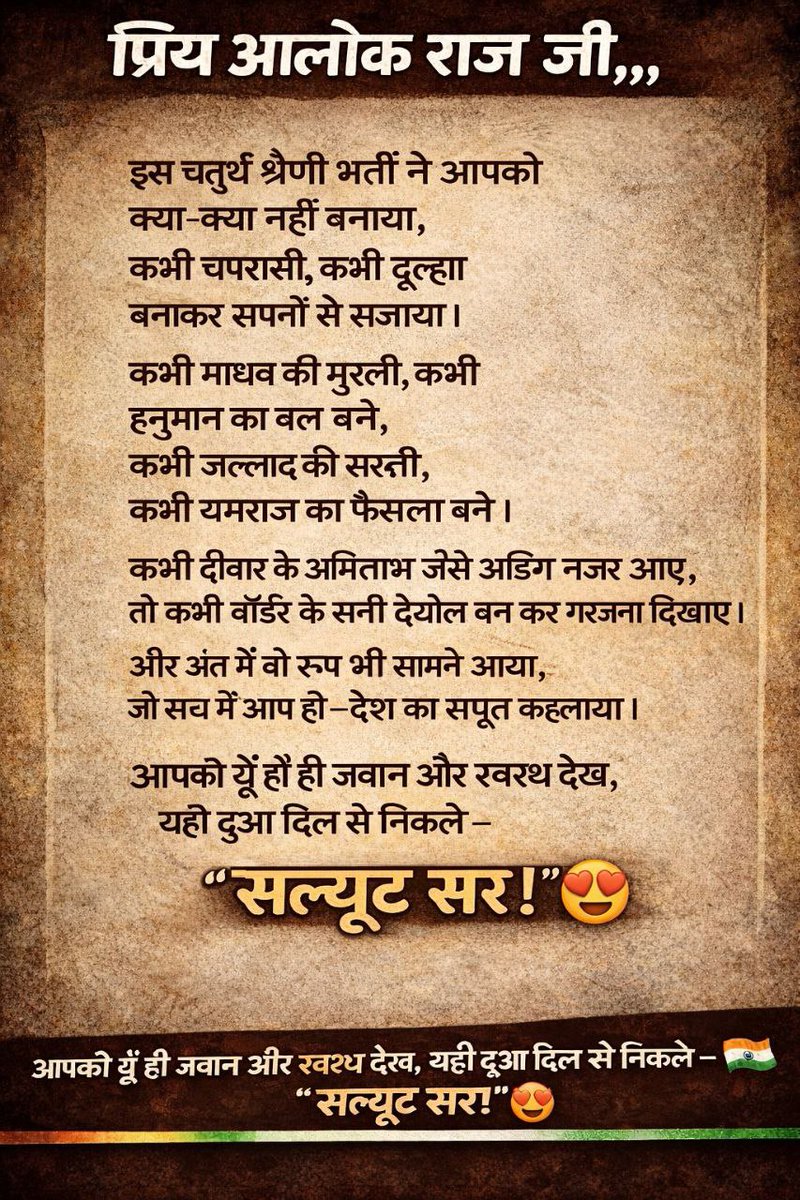 प्रिय आलोक राज जी,,,
इस चतुर्थ श्रैणी भर्ती ने आपको
क्या-क्या नहीं बनाया,
कभी चपरासी, कभी दूल्हाा
बनाकर सपनों से सजाया।
कभी माधव की मुरली, कभी
हनुमान का वल बने,
कभी जल्लाद की सरती,
कभी यमराज का फैसला बने।
कभी दीवार के अमिताभ जेसे अडिग नजर आए,
तो कभी वॉर्डर के सनी देयोल बन कर गरजना दिखाए।
और अंत में वो रुप भी सामने आया,
जो सच में आप हो–देश का सपूत कहलाया।
आपको यूें हौं ही जवान और रवरथ देख,
यही दुआ दिल से निकले –
“सल्यूट सर!”😍
आपको यूं ही जवान और रवश्थ देख, यही दूआ दिल से निकले – 🇮🇳
“सल्यूट सर!”😍